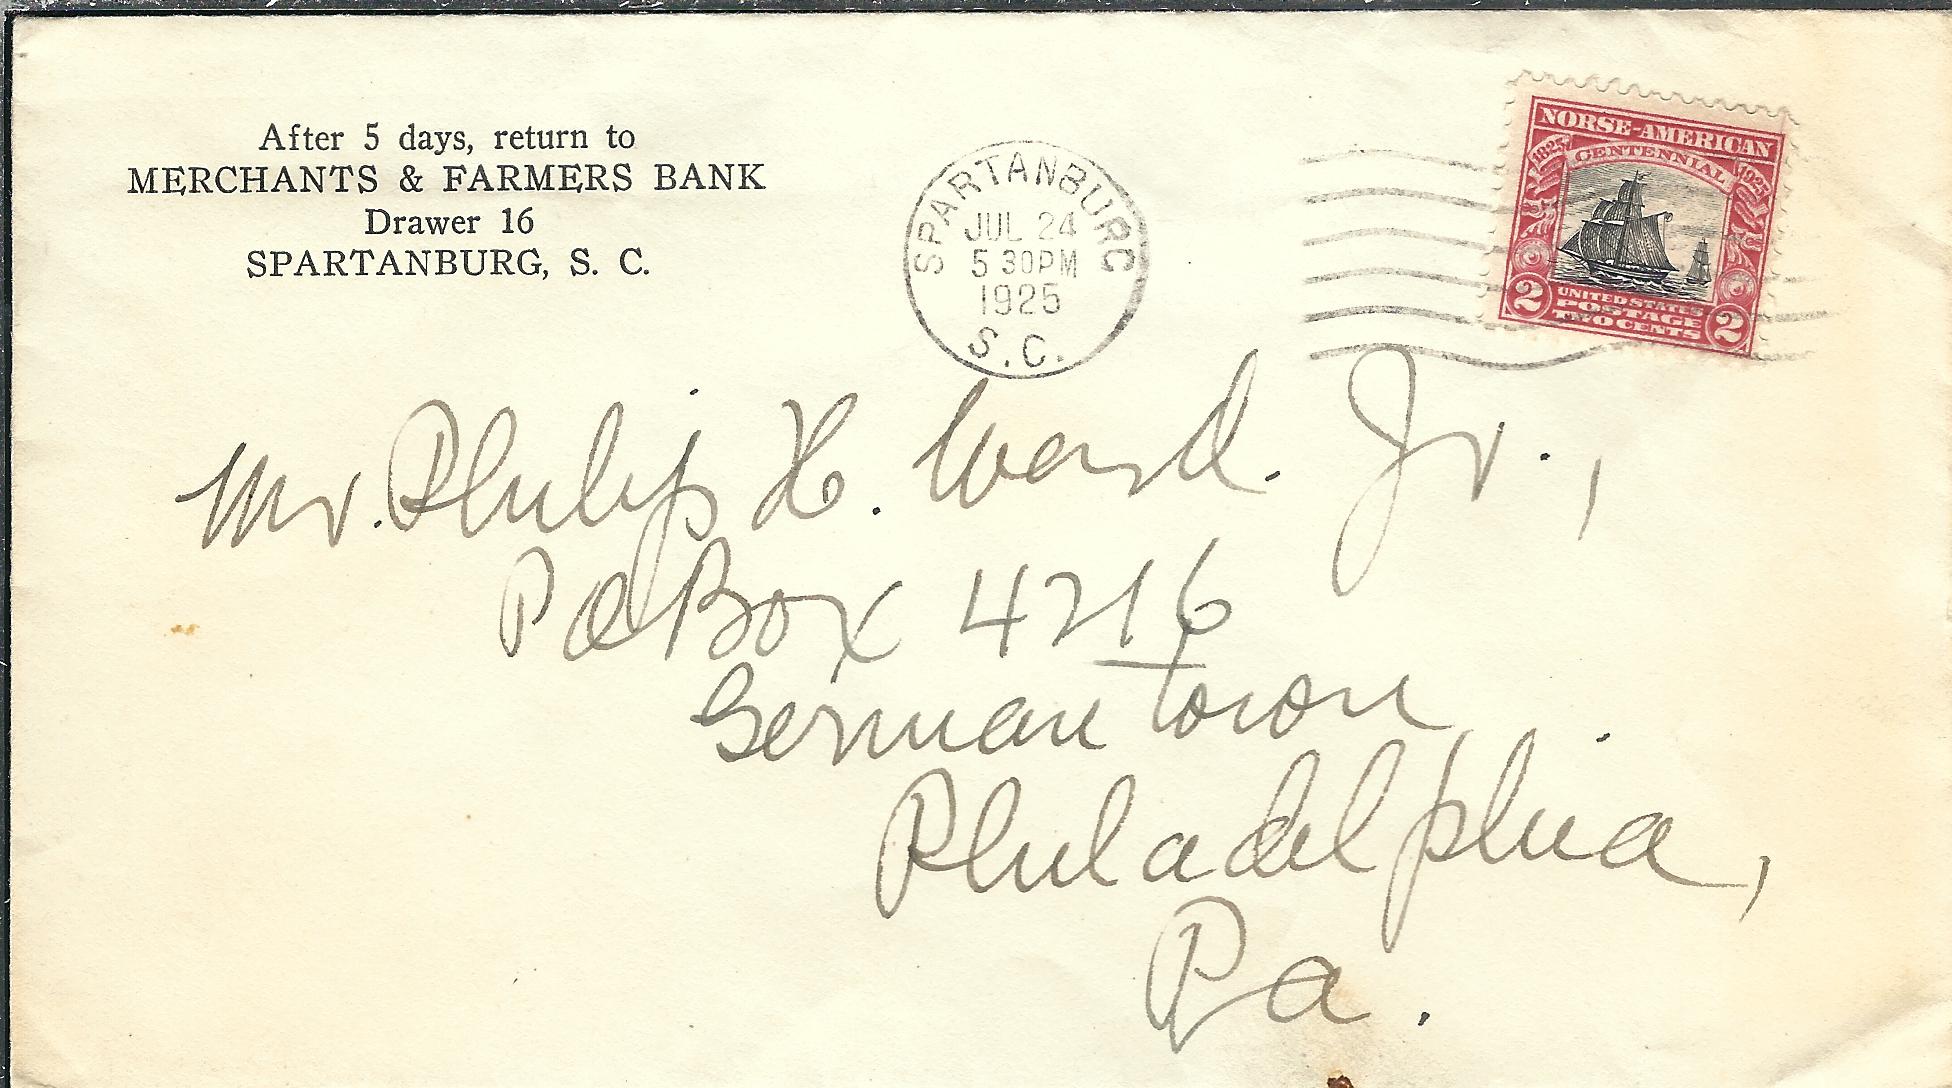 After 5 days, return to
MERCHANTS & FARMERS BANK
Drawer 16
SPARTANBURG, S. C.
SPARTANBURG
JUL 24
5 30PM
1925
S.C.
NORSE-AMERICAN
CENTENNIAL
1825 1925
UNITED STATES
POSTAGE
2 TWO CENTS 2
Mr. Philip H. Ward. Jr.,
PO Box 4216
Germantown
Philadelphia,
Pa.